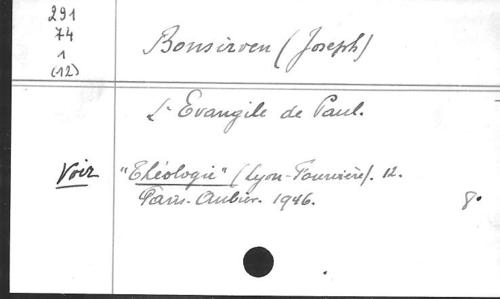 291
74
1
(12)
Bonsirven (Joseph)
L'Evangile de Paul.
Voir "Théologie" (Lyon-Fourvière). 12.
Paris-Aubier. 1946.
8°